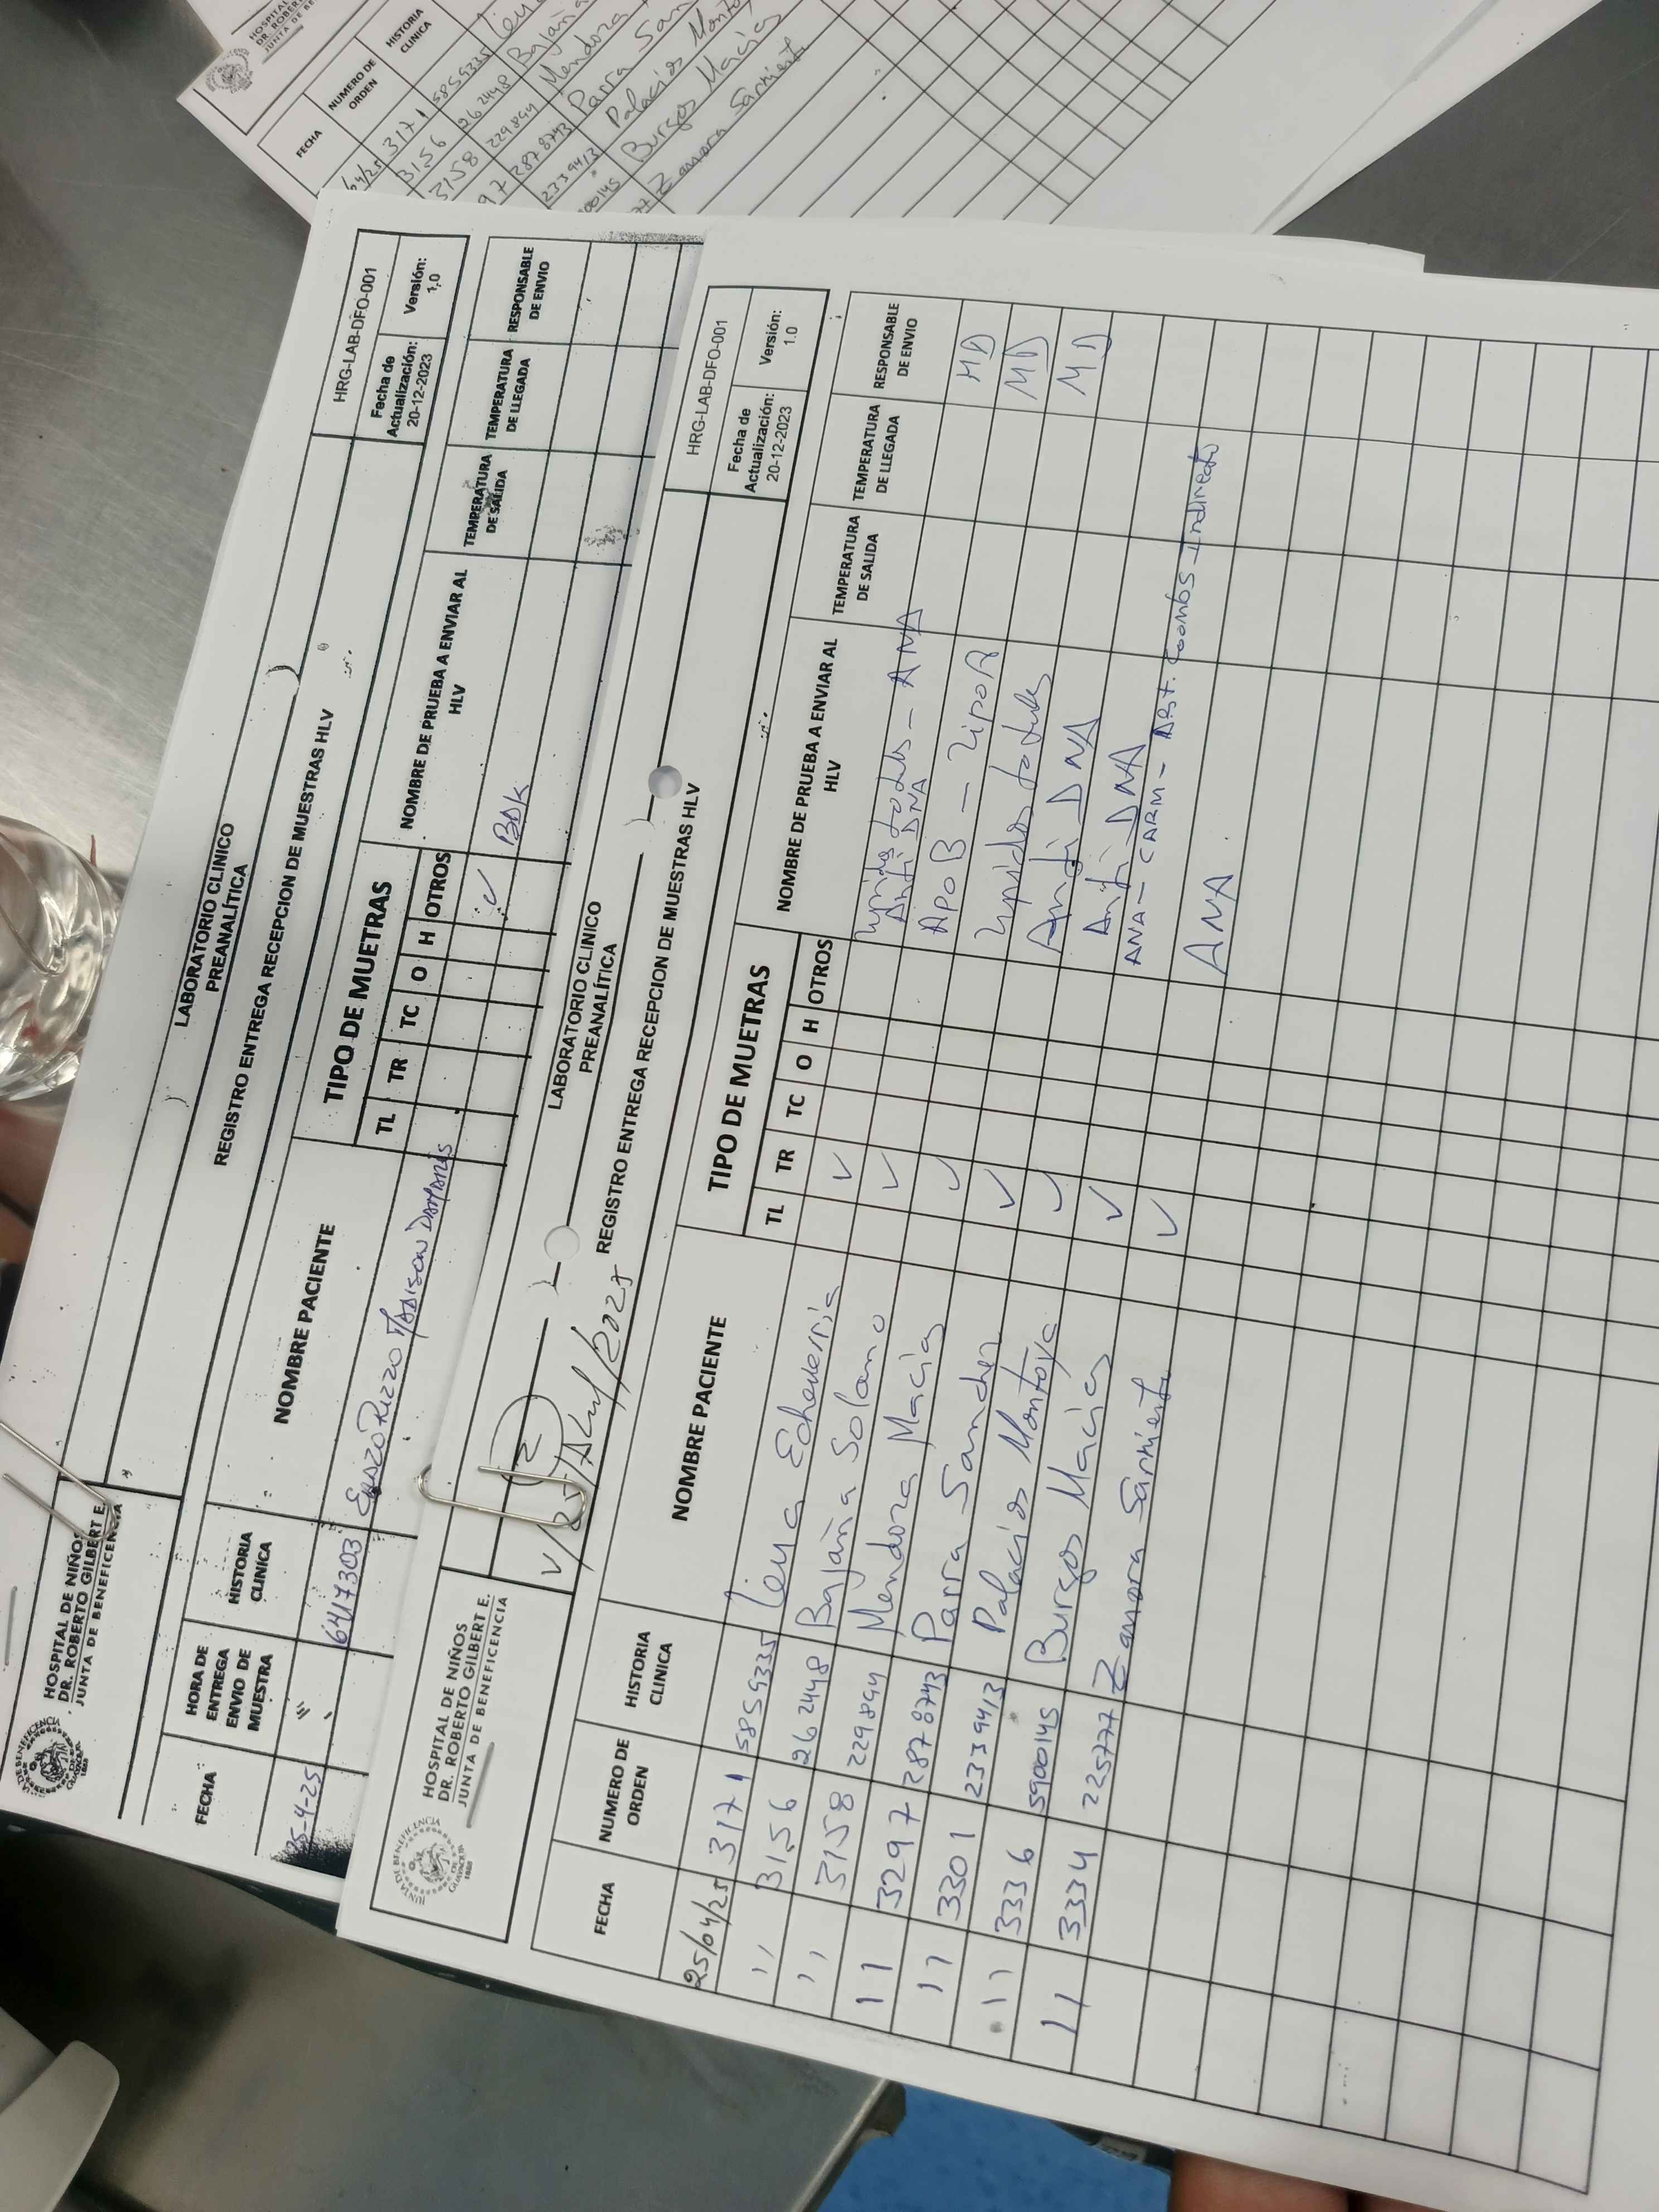 HOSPITAL
DR. ROBER
JUNTA DE BE
FECHA NUMERO DE ORDEN HISTORIA CLINICA
3171 5859335
3156 262448 Bajaña
3158 229894 Mendoza
97 2878743 Parra San
2339413 Palacios Monto
Burgos Macías
Zamora Sarmiento
JUNTA DE BENEFICENCIA
HOSPITAL DE NIÑOS
DR. ROBERTO GILBERT E.
JUNTA DE BENEFICENCIA
LABORATORIO CLINICO
PREANALÍTICA
REGISTRO ENTREGA RECEPCION DE MUESTRAS HLV
HRG-LAB-DFO-001
Fecha de Actualización: 20-12-2023
Versión: 1,0
FECHA HORA DE ENTREGA ENVIO DE MUESTRA HISTORIA CLINICA NOMBRE PACIENTE TIPO DE MUETRAS NOMBRE DE PRUEBA A ENVIAR AL HLV TEMPERATURA DE SALIDA TEMPERATURA DE LLEGADA RESPONSABLE DE ENVIO
TL TR TC O H OTROS
25-4-25 6417303 ✓ BDK
JUNTA DE BENEFICENCIA DE GUAYAQUIL 1888
HOSPITAL DE NIÑOS
DR. ROBERTO GILBERT E.
JUNTA DE BENEFICENCIA
LABORATORIO CLINICO
PREANALÍTICA
REGISTRO ENTREGA RECEPCION DE MUESTRAS HLV
HRG-LAB-DFO-001
Fecha de Actualización: 20-12-2023
Versión: 1.0
FECHA NUMERO DE ORDEN HISTORIA CLINICA NOMBRE PACIENTE TIPO DE MUETRAS NOMBRE DE PRUEBA A ENVIAR AL HLV TEMPERATURA DE SALIDA TEMPERATURA DE LLEGADA RESPONSABLE DE ENVIO
TL TR TC O H OTROS
25/04/25 3171 5859335 Echeverria ✓ - ANA
Anti DNA
" 3156 262448 Bajaña Solano ✓ Apo B - Lipo A MD
" 3158 229894 Mendoza Macías ✓ MD
11 3297 2878743 Parra Sanchez ✓ Anti DNA MD
11 3301 2339413 Palacios Montoya ✓ Anti DNA
11 3336 5900145 Burgos Macías ✓ ANA - CARM - Coombs Indirecto
11 3334 225777 Zamora Sarmiento ✓ ANA